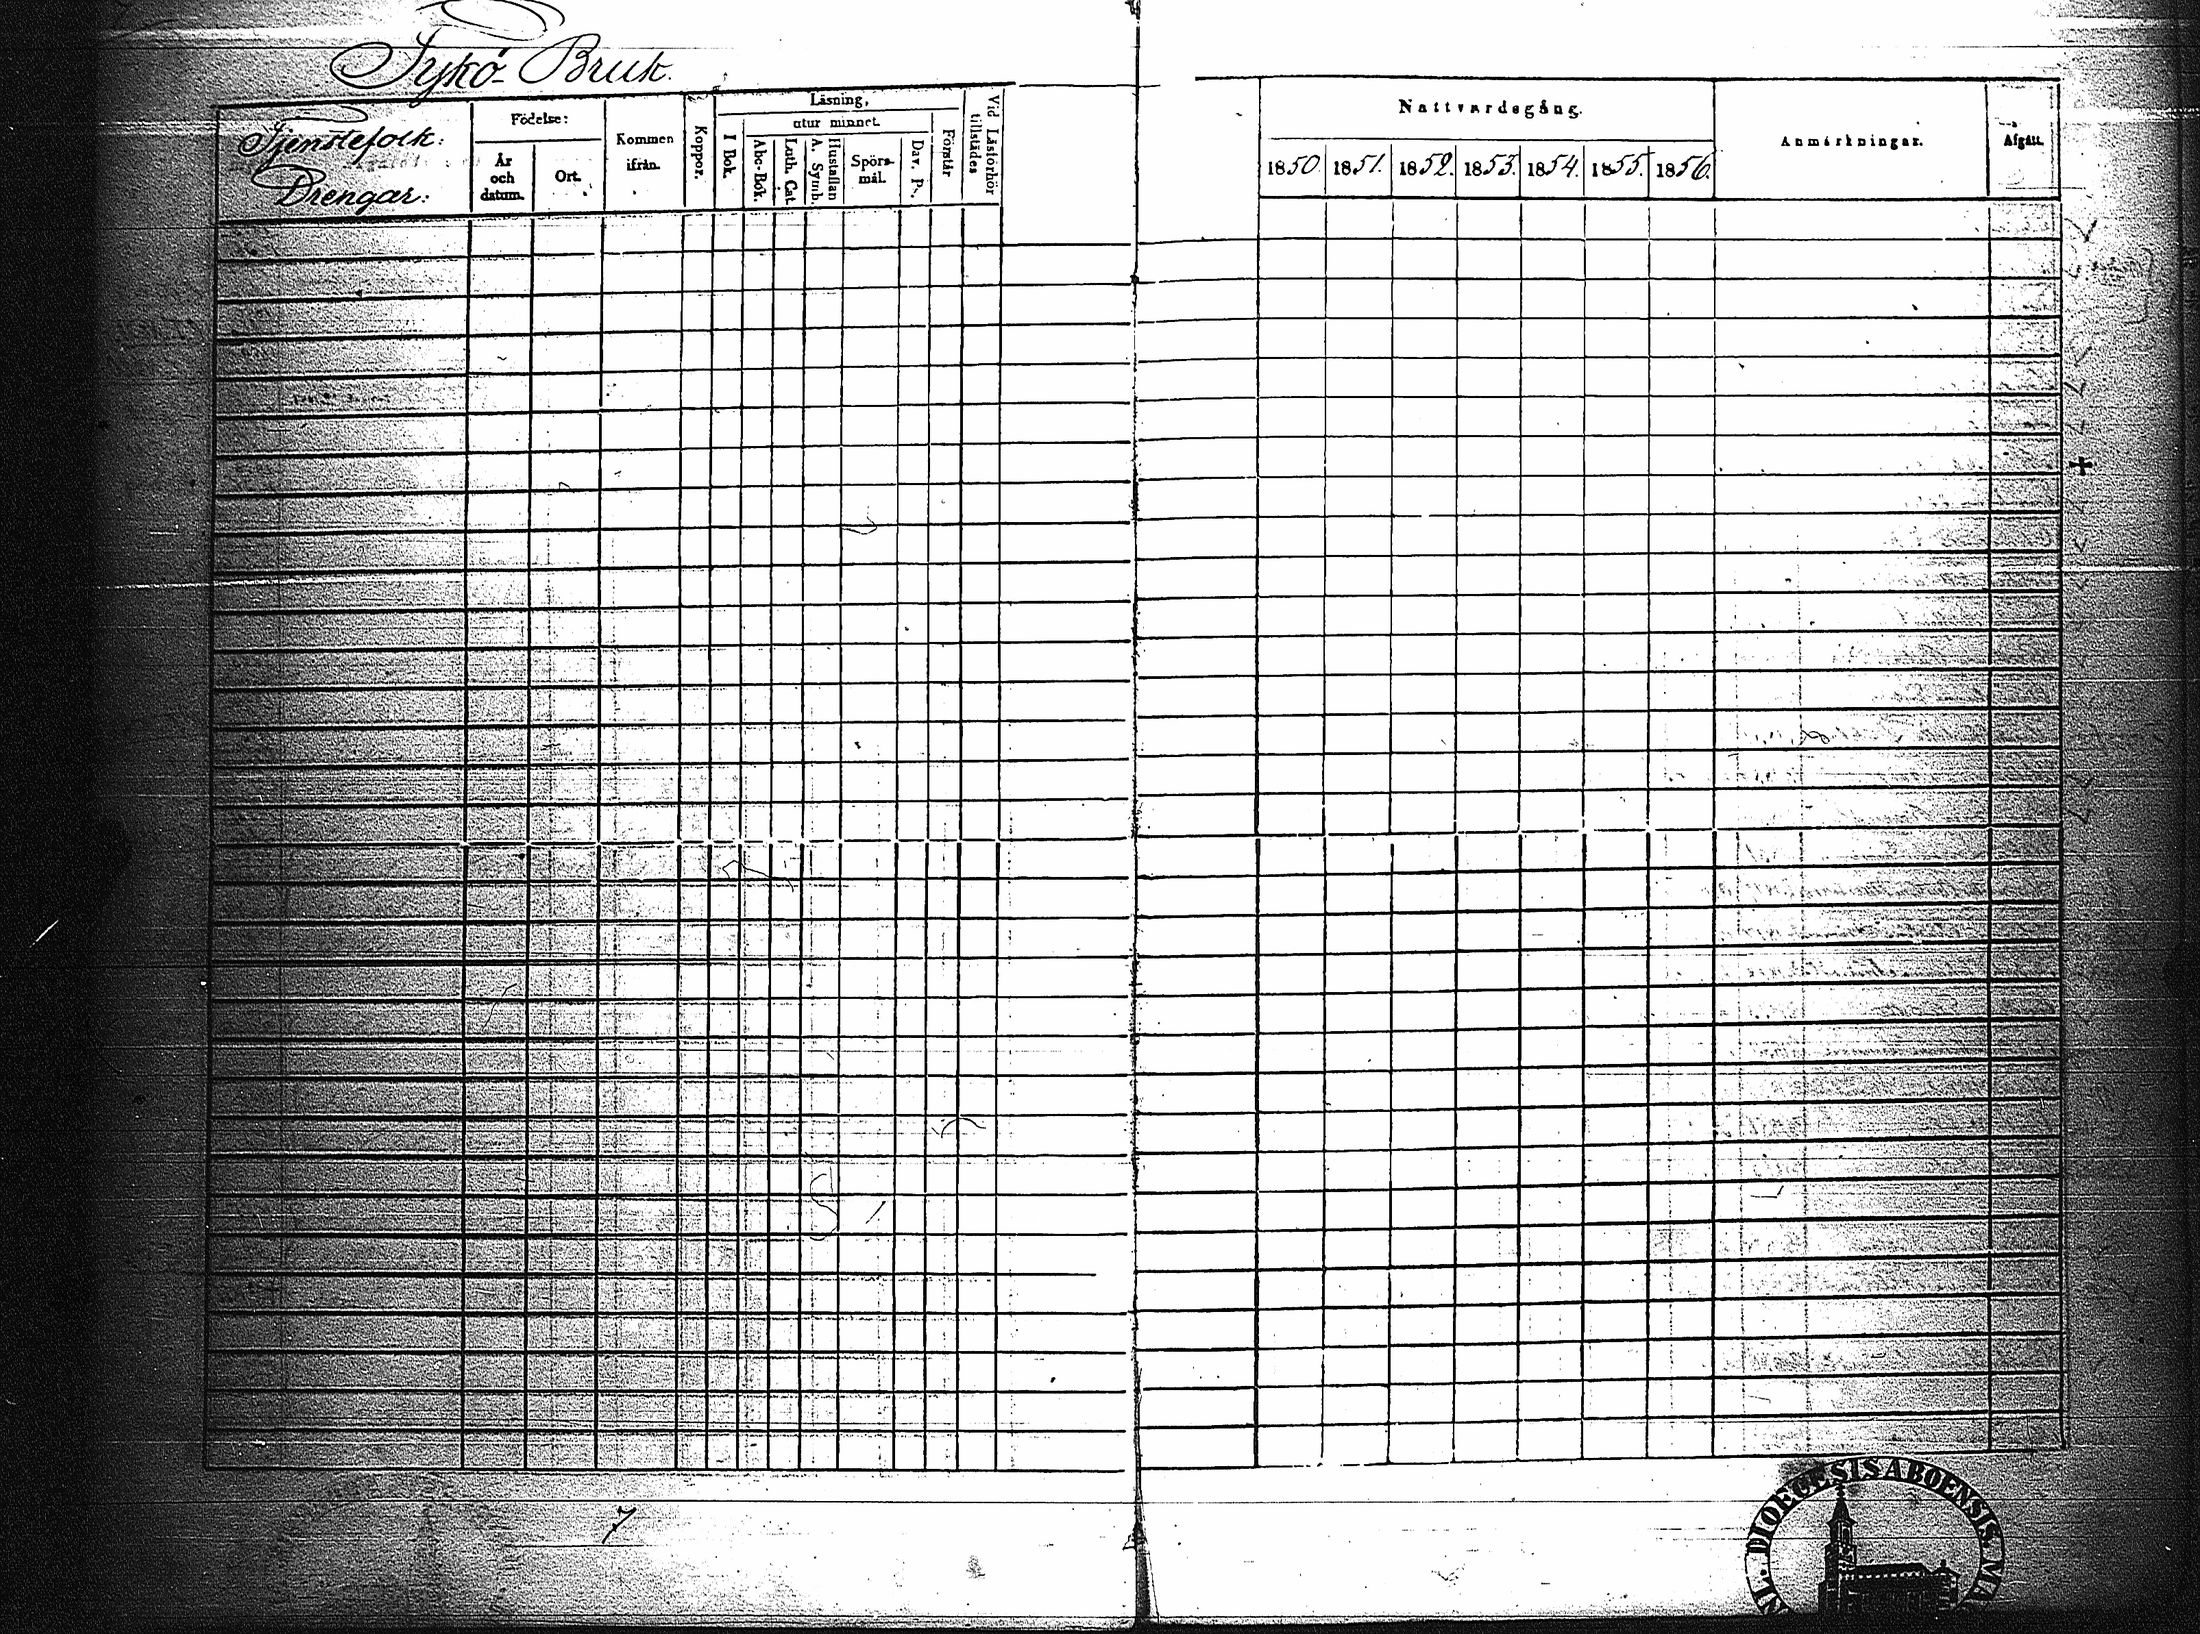 Tykö Bruk.
Tjenstefolk:
Drengar:
Födelse:
År och datum.
Ort.
Kommen ifrån.
Koppor.
Läsning,
I Bok.
utur minnet.
Abc-Bok.
Luth. Cat.
Hustaflan A. Symb.
Spörsmål.
Dav. Ps.
Förstår
Vid Läsförhör tillstädes
Nattvardsgång.
1850. 1851. 1852. 1853. 1854. 1855. 1856.
Anmärkningar.
Afgått.
DIOECESIS ABOENSIS